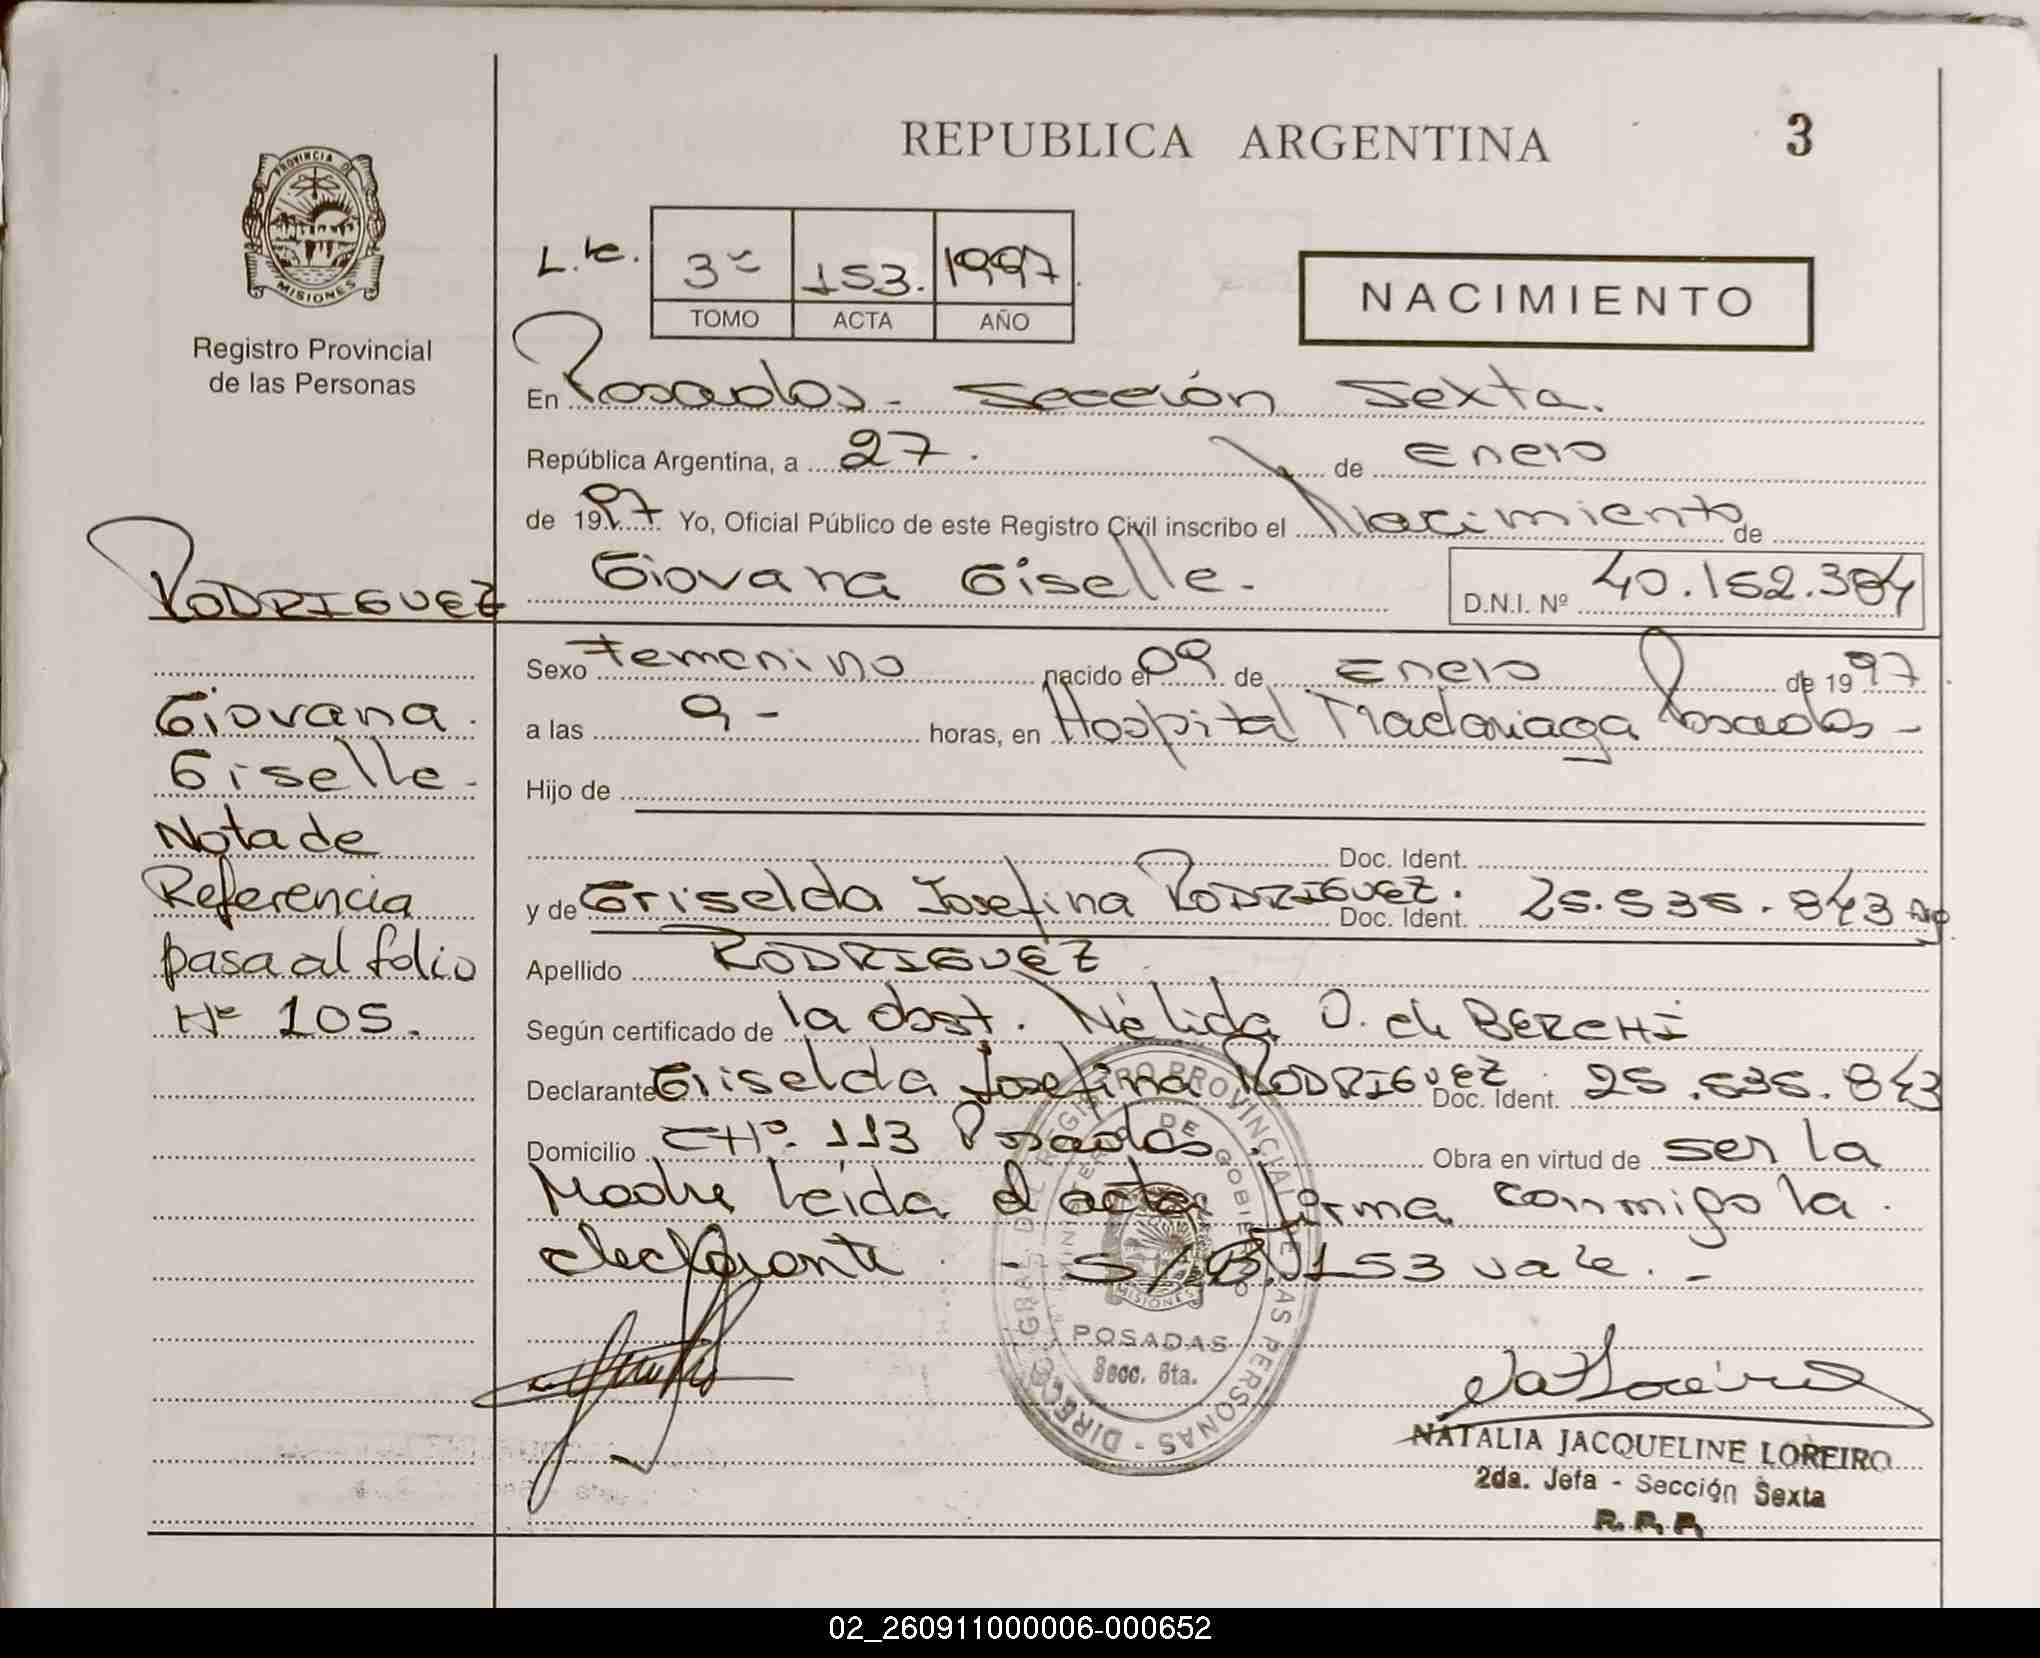 REPUBLICA ARGENTINA
3
PROVINCIA DE
MISIONES
Registro Provincial
de las Personas
3º 153. 1997.
TOMO ACTA AÑO
NACIMIENTO
En Posadas - Sección Sexta.
República Argentina, a 27. de Enero
de 1997 Yo, Oficial Público de este Registro Civil inscribo el Nacimiento de
Giovana Giselle.
D.N.I. Nº 40.152.384
RODRIGUEZ
Giovana
Giselle -
Nota de
Referencia
pasa al folio
Nº 105.
Sexo Femenino nacido el 09 de Enero de 1997
a las 9 - horas, en Hospital Madariaga Posadas -
Hijo de
Doc. Ident.
y de Griselda Josefina RODRIGUEZ. Doc. Ident. 25.535.843 Arg
Apellido RODRIGUEZ
Según certificado de la obst. Nélida O. de BERCHI
Declarante Griselda Josefina RODRIGUEZ Doc. Ident. 25.535.843
Domicilio CHº. 113 Posadas. Obra en virtud de ser la
Madre leída el acta firma conmigo la
declarante. - S/B. 153 vale. -
DIRECC. GRAL. DEL REGISTRO PROVINCIAL DE LAS PERSONAS
MINISTERIO DE GOBIERNO
MISIONES
POSADAS
Secc. 6ta.
NATALIA JACQUELINE LOREIRO
2da. Jefa - Sección Sexta
R. P. P.
02_260911000006-000652